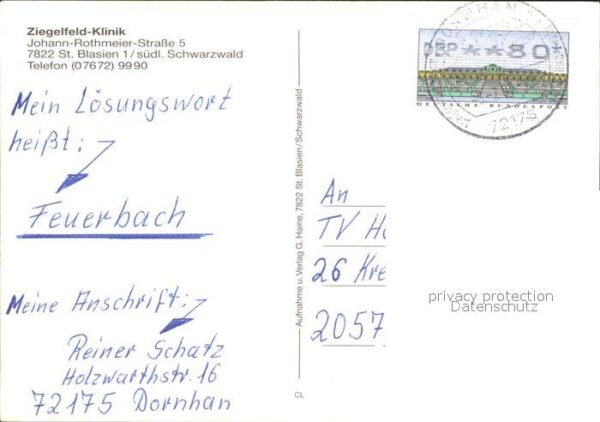 Ziegelfeld-Klinik
Johann-Rothmeier-Straße 5
7822 St. Blasien 1/südl. Schwarzwald
Telefon (07672) 9990
Mein Lösungswort
heißt:
Feuerbach
Meine Anschrift:
Reiner Schatz
Holzwarthstr. 16
72175 Dornhan
Aufnahme u. Verlag G. Haine, 7822 St. Blasien/Schwarzwald
CL
DBP **80*
DEUTSCHE BUNDESPOST
72175
An
TV
26 Kre
2057
privacy protection
Datenschutz